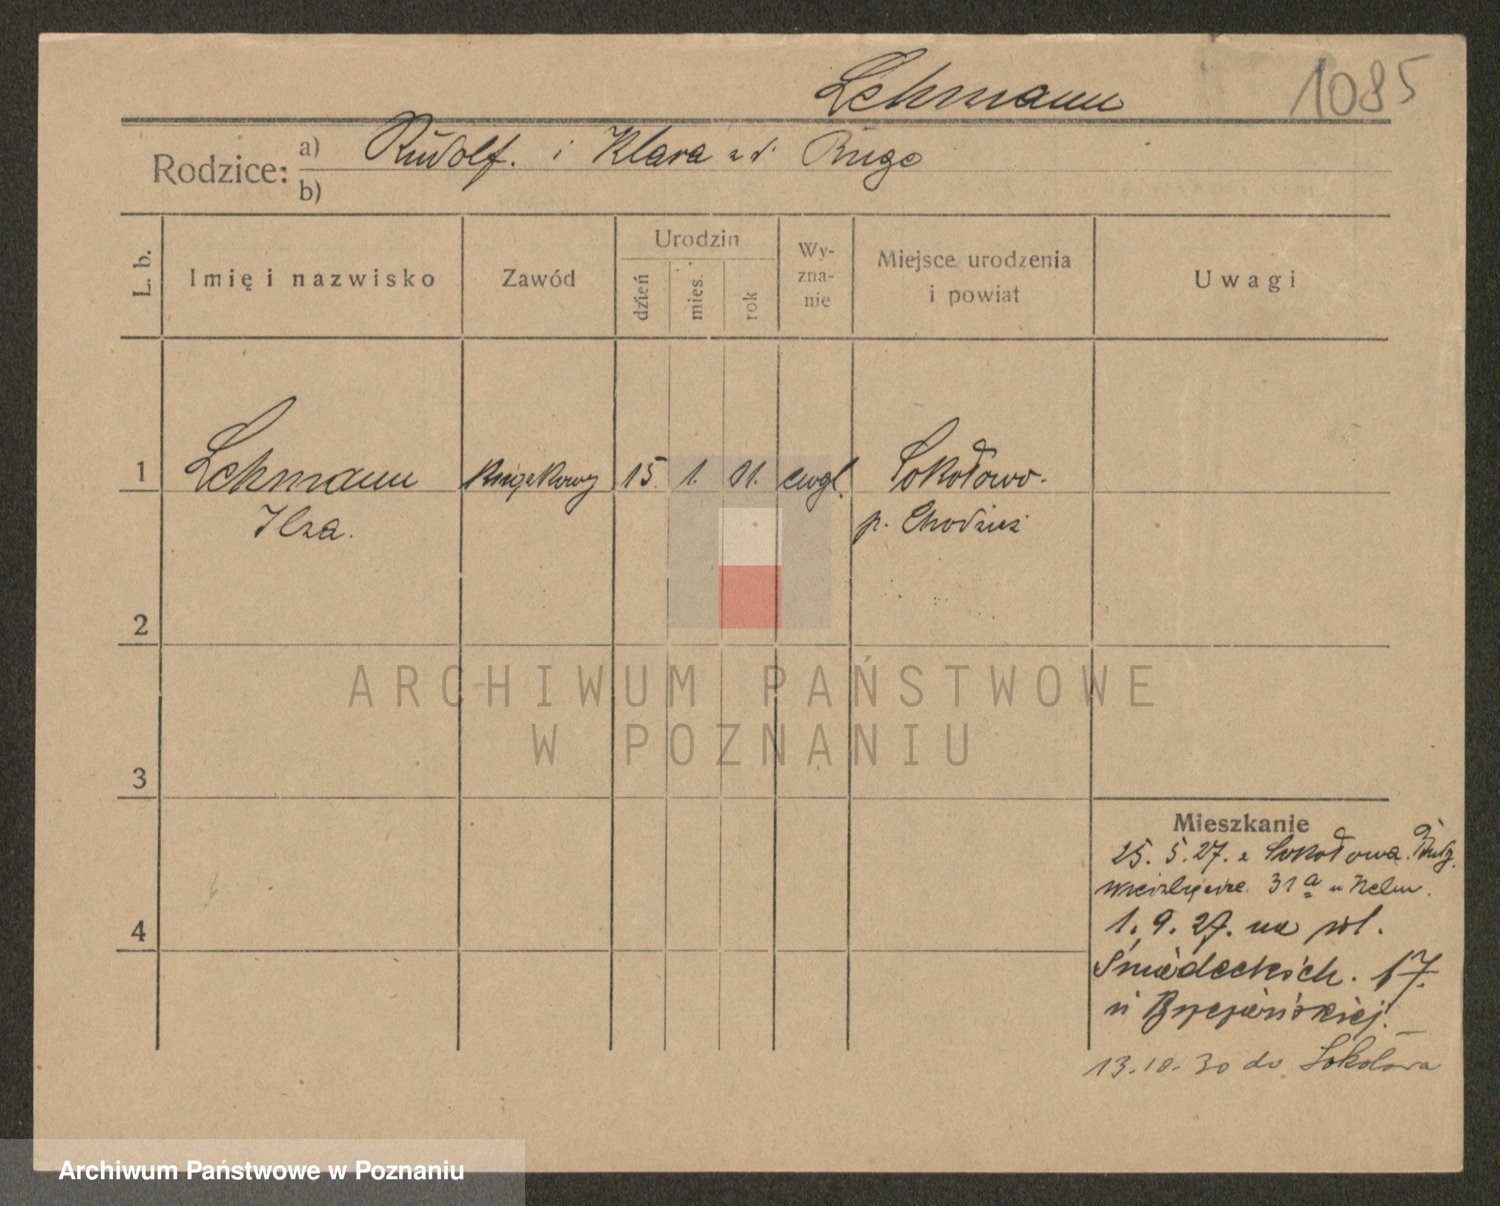 Lehmann
1085
Rodzice: a) Rudolf. i Klara z d. Ruge
b)
L. b.
Imię i nazwisko
Zawód
Urodzin
dzień
mies.
rok
Wy-
zna-
nie
Miejsce urodzenia
i powiat
Uwagi
1 Lehmann 15. 1. 01. ewgl. Sokołowo.
Ilza. p. Chodzież
2
ARCHIWUM PAŃSTWOWE
W POZNANIU
3
Mieszkanie
25. 5. 27. z Sokołowa.
31 a u
4 1. 9. 27. na
Śniadeckich. 17.
u
13.10.30 do Sokołowa
Archiwum Państwowe w Poznaniu